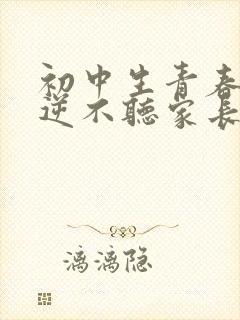 初中生青春
逆不聽家長
漓漓隐